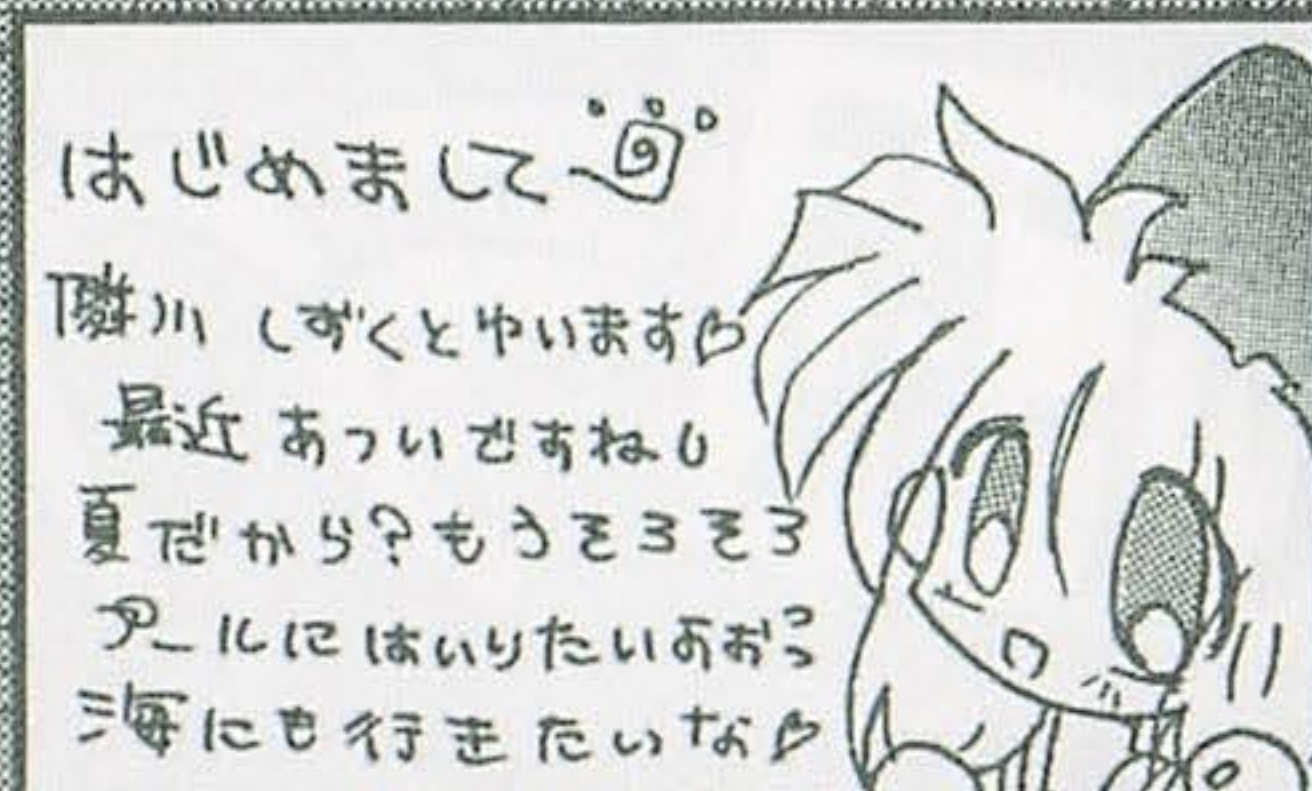 はじめまして
隣川 しずくとゆいます♡
最近 あついですねし
夏だから?もうそろそろ
プールにはいりたいよおっ
海にも行きたいな♡